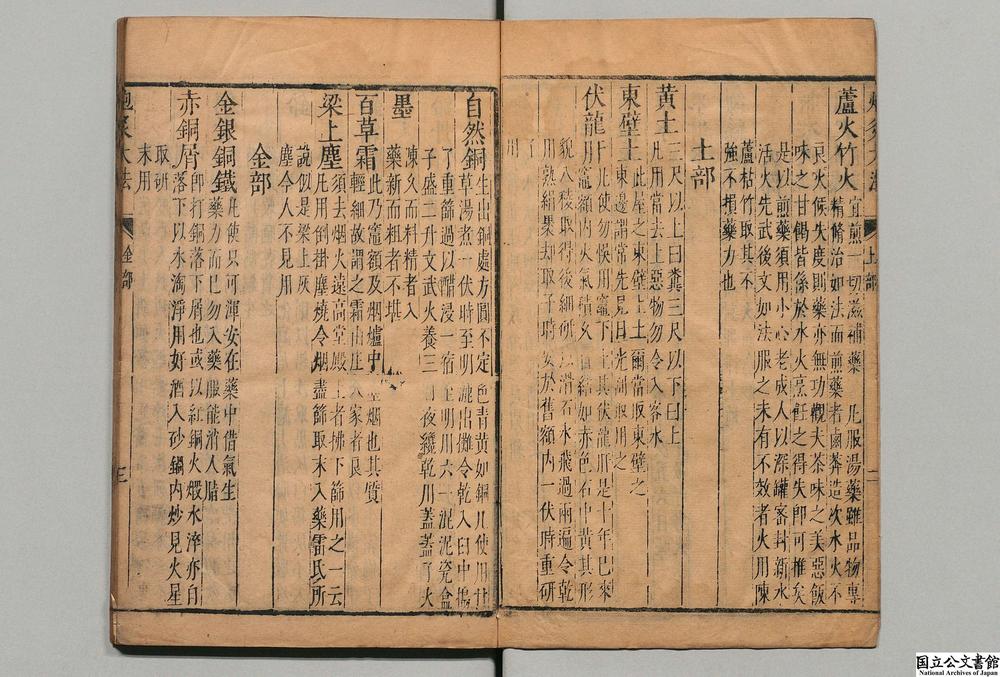 炮炙大法 土部 二
蘆火竹火 宜煎一切滋補藥 凡服湯藥雖品物專
精修治如法而煎藥者鹵莽造次水火不
良火候失度則藥亦無功觀夫茶味之美惡飯
味之甘餲皆係於水火烹飪之得失即可推矣
是以煎藥須用小心老成人以深罐密封新水
活火先武後文如法服之未有不效者火用陳
蘆枯竹取其不
強不損藥力也
土部
黃土 三尺以上曰糞三尺以下曰土
凡用當去上惡物勿令入客水
東壁土 此屋之東壁上土爾當取東壁之
東邊謂常先見日光刮取用之
伏龍肝 凡使勿悮用竈下土其伏龍肝是十年已來
竈額內火氣積久自結如赤色石中黃其形
貌八稜取得後細研以滑石水飛過兩遍令乾
用熟絹裹却取子時安於舊額內一伏時重研
了
用
自然銅 生出銅處方圓不定色青黃如銅凡使用甘
草湯煮一伏時至明漉出攤令乾入臼中搗
了重篩過以醋浸一宿至明用六一混泥瓷盒
子盛二升文武火養三日夜纔乾用蓋蓋了火
墨 陳久而料精者入
藥新而粗者不堪
百草霜 此乃竈額及烟爐中墨烟也其質
輕細故謂之霜山庄人家者良
梁上塵 須去烟火遠高堂殿上者拂下篩用之一云
凡用倒掛塵燒令烟盡篩取末入藥雷氏所
說似是梁上灰
塵今人不見用
金部
金銀銅鐵 凡使只可渾安在藥中借氣生
藥力而已勿入藥服能消人脂
赤銅屑 即打銅落下屑也或以紅銅火煅水淬亦自
落下以水淘淨用好酒入砂鍋內炒見火星
取研
末用
炮炙大法 金部 三
国立公文書館
National Archives of Japan